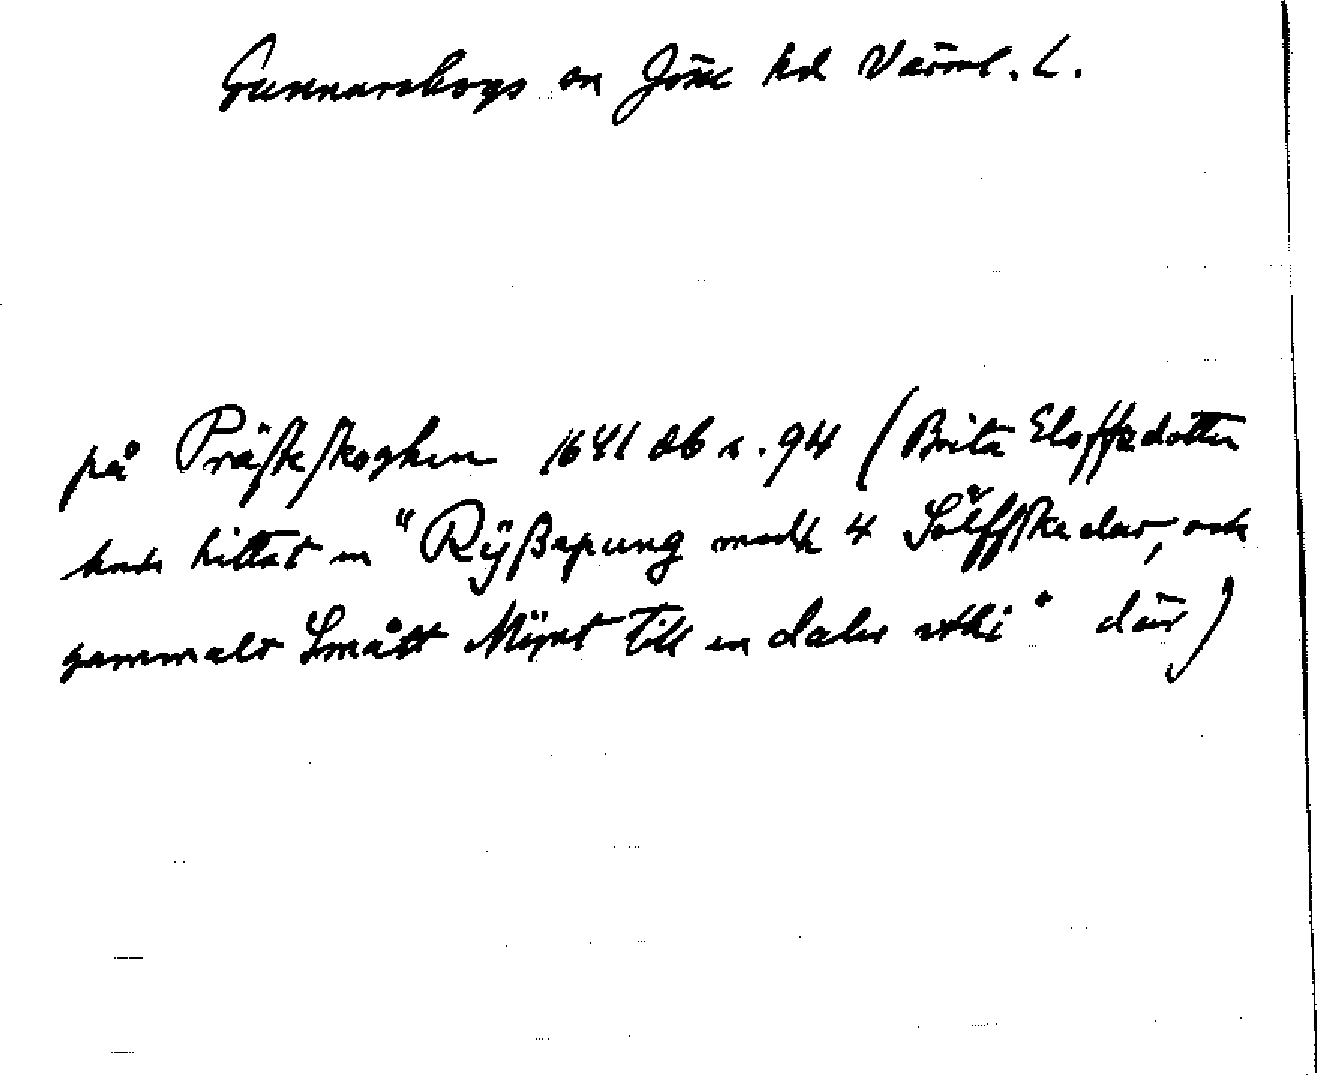 Gunnarskogs sn Jösse hd Värml. L.
på Prästeskoghen 1641 db s. 94 (Brita Eloffzdotter
hade hittat en "Rÿßepung medh 4 Sölffskedar, och
gammalt Smått Mÿnt till en daler "  där)